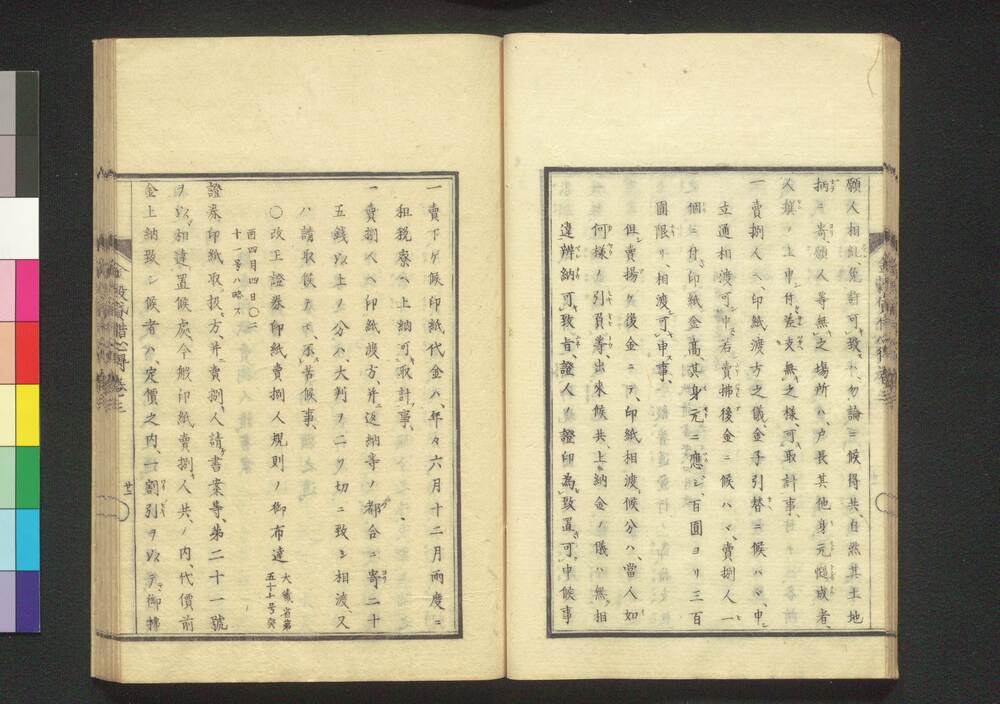 願人相糺免許可致ハ勿論ニ候得共自然其土地
柄ニ寄願人等無之場所ハ户長其他身元慥成者
人撰ノ上申付差支無之様可取計事
一賣捌人ヘ印紙渡方之儀金子引替ニ候ハヽ申
立通相渡可申若賣拂後金ニ候ハヽ賣捌人一
個ニ付印紙金高其身元ニ應シ百圓ヨリ三百
圓限リ相渡可申事
但賣揚ケ後金ニテ印紙相渡候分ハ當人如
何様ノ引負等出來候共上納金ノ儀ハ無相
違辨納可致旨證人ヘ證印為致置可申候事
一賣下ケ候印紙代金ハ年々六月十二月兩度ニ
租税寮ヘ上納可取計事
一賣捌人ヘ印紙渡方并返納等ノ都合ニ寄二十
五錢以上ノ分ハ大判ヲ二ツ切ニ致シ相渡又
ハ請取候テモ不苦候事
〇改正證券印紙賣捌人規則ノ御布達 大藏省第五十号癸
酉四月四日〇二
十一号ハ略ス
證券印紙取扱方并賣捌人請書案等第二十一號
ヲ以相達置候處今般印紙賣捌人共ノ内代價前
金上納致シ候者ハ定價之内一割引ヲ以テ御拂
廿二